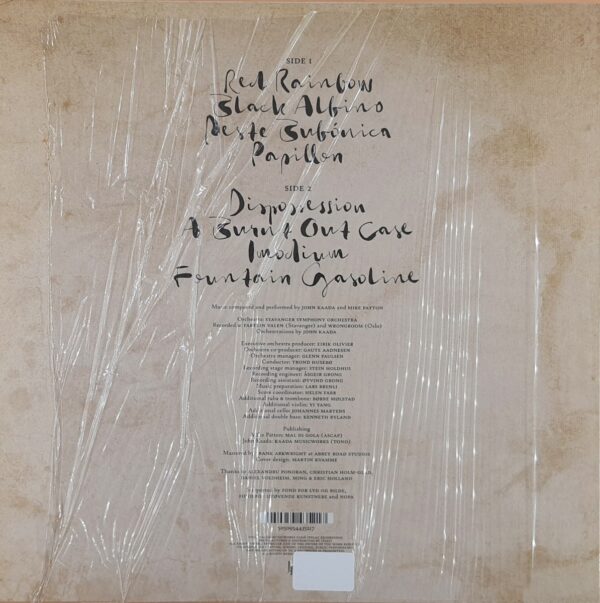 SIDE 1
Red Rainbow
Black Albino
Peste Bubónica
Papillon
SIDE 2
Dispossession
A Burnt Out Case
Imodium
Fountain Gasoline
Music composed and performed by JOHN KAADA and MIKE PATTON
Orchestra: STAVANGER SYMPHONY ORCHESTRA
Recorded in FARTEIN VALEN (Stavanger) and WRONGROOM (Oslo)
Orchestrations by JOHN KAADA
Executive orchestra producer: EIRIK OLIVIER
Orchestra co-producer: GAUTE AADNESEN
Orchestra manager: GLENN PAULSEN
Conductor: TROND HUSEBØ
Recording stage manager: STEIN HOLDHUS
Recording engineer: ASGEIR GRONG
Recording assistant: ØYVIND GRONG
Music preparation: LARS BRENLI
Score coordinator: HELEN FARR
Additional tuba & trombone: BØRRE MØLSTAD
Additional violin: YI YANG
Additional cello: JOHANNES MARTENS
Additional double bass: KENNETH RYLAND
Publishing
Mike Patton: MAL DI GOLA (ASCAP)
John Kaada: KAADA MUSICWORKS (TONO)
Mastered by FRANK ARKWRIGHT at ABBEY ROAD STUDIOS
Cover design: MARTIN KVAMME
Thanks to ALEXANDRU PONORAN, CHRISTIAN HOLM-GLAD,
DANIEL VOLDHEIM, MING & ERIC HOLLAND
Support by FOND FOR LYD OG BILDE,
FOND FOR UTØVENDE KUNSTNERE and NOPA